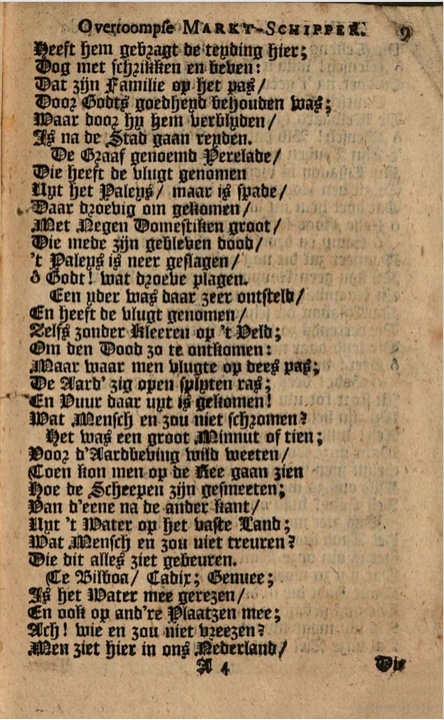 Overtoompse MARKT-SCHIPPER. 9
Heeft hem gebragt de teyding hier;
Dog met schrikken en beven:
Dat zijn Familie op het pas/
Door Godts goedheyd behouden was;
Waar door hy hem verblyden/
Is na de Stad gaan reyden.
De Graaf genoemd Perelade/
Die heeft de vlugt genomen
Uyt het Paleys/ maar is spade/
Daar droevig om gekomen/
Met Negen Domestiken groot/
Die mede zijn gebleven dood/
't Paleys is neer geslagen/
ô Godt! wat droeve plagen.
Een yder was daar zeer ontsteld/
En heeft de vlugt genomen/
Zelfs zonder Kleeren op 't Veld;
Om den Dood zo te ontkomen:
Maar waar men vlugte op dees pas;
De Aard' zig open splyten ras;
En Vuur daar uyt is gekomen!
Wat Mensch en zou niet schromen?
Het was een groot Minnut of tien;
Voor d'Aardbeving wild weeten/
Toen kon men op de Ree gaan zien
Hoe de Scheepen zijn gesmeeten;
Van d'eene na de ander kant/
Uyt 't Water op het vaste Land;
Wat Mensch en zou niet treuren?
Die dit alles ziet gebeuren.
Te Bilboa/ Cadix; Genuee;
Is het Water mee gerezen/
En ook op and're Plaatzen mee;
Ach! wie en zou niet vreezen?
Men ziet hier in ons Nederland/
A 4 Die